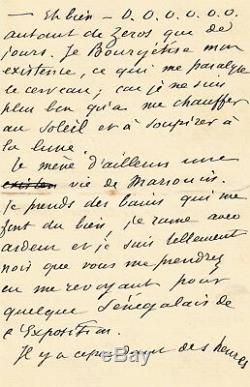 — Eh bien — O. O. O. O. O. O.
autant de zéros que de
jours. Je Bourgeoise mon
existence, ce qui me paralyse
le cerveau; car je ne suis
plus bon qu'à me chauffer
au Soleil et à soupirer à
la lune.
Je mène d'ailleurs une
vie de Marsouin.
Je prends des bains qui me
font du bien, je rame avec
ardeur et je suis tellement
noir que vous me prendrez
en me revoyant pour
quelque Sénégalais de
l'Exposition.
Il y a cependant des heures